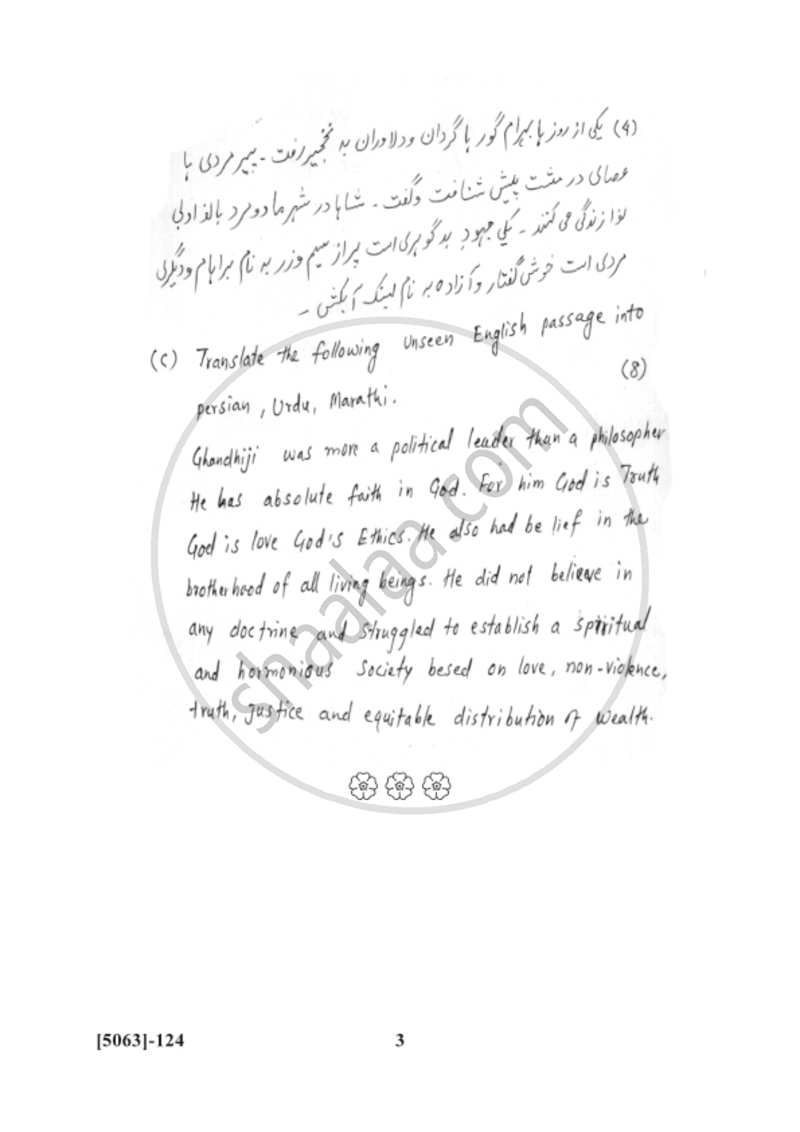 (4) یکی از روز ہا بہرام گور با گردان و دلاوران بہ نخجیر رفت ۔ پیر مردی با
عصای در مشت پیش شتافت و گفت ۔ شاہا در شہر ما دو مرد بالذا و دلی
نوا زندگی می کنند ۔ یکی جہود بد گوہری است پر از سیم و زر بہ نام براہام و دیگری
مردی است خوش گفتار و آزادہ بہ نام لینک آبکش ۔
(C) Translate the following unseen English passage into
persian, Urdu, Marathi. (8)
Ghandhiji was more a political leader than a philosopher
He has absolute faith in God. For him God is Truth
God is love God's Ethics. He also had be lief in the
brotherhood of all living beings. He did not believe in
any doctrine and struggled to establish a spiritual
and hormonious Society besed on love, non-violence,
truth, justice and equitable distribution of wealth.
shaalaa.com
[5063]-124 3